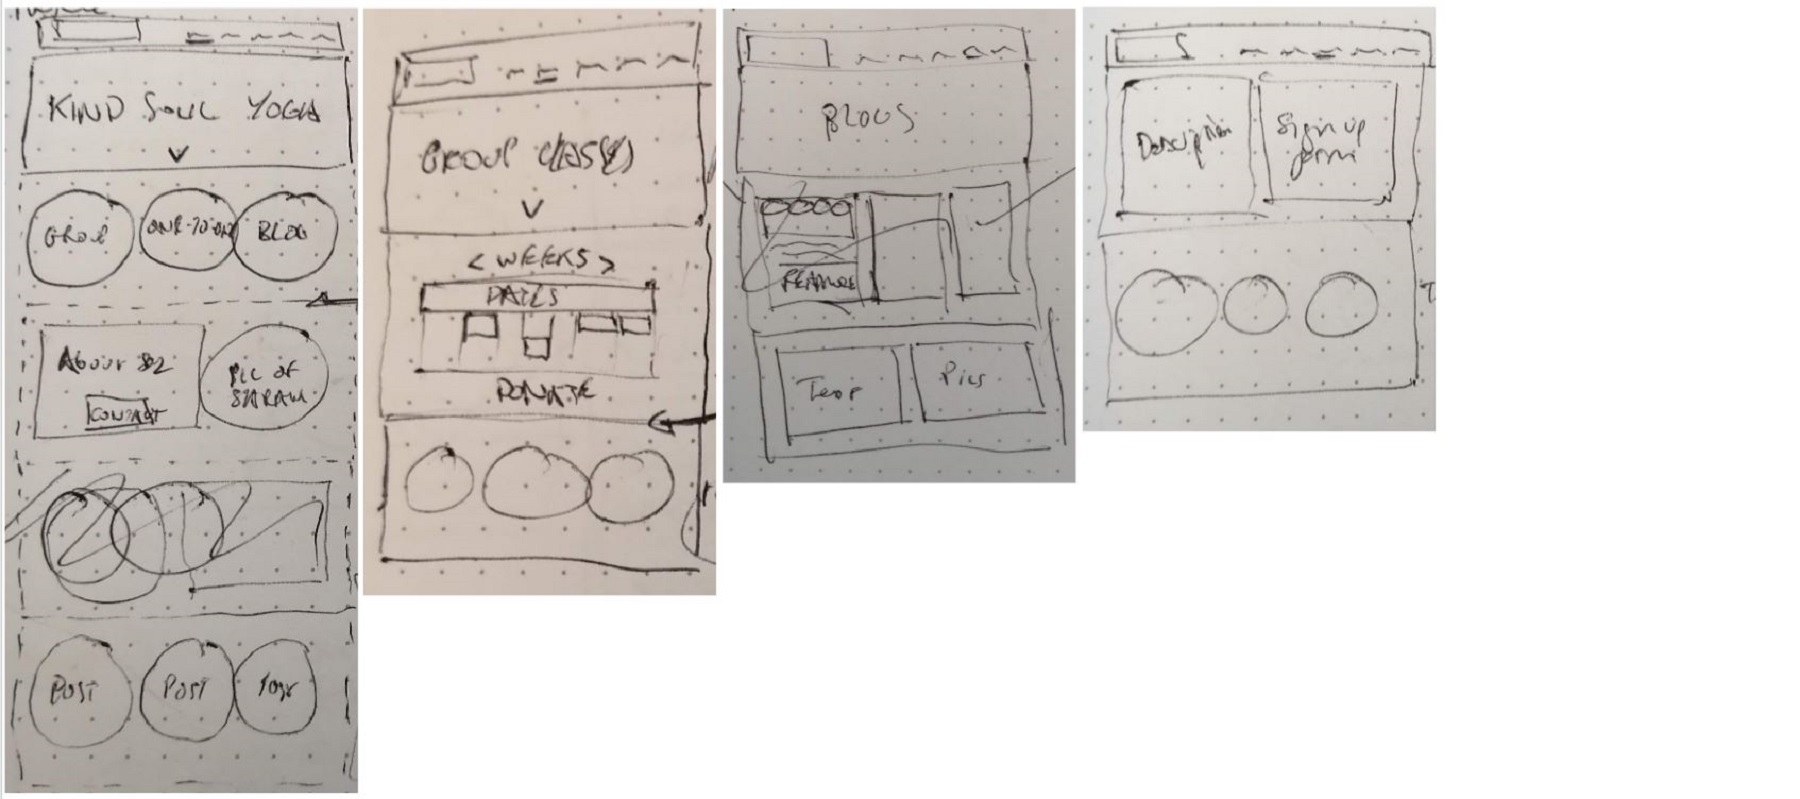 KIND SOUL YOGA
GROUP
ONE-TO-ONE
BLOG
ABOUT
CONTACT
PIC OF
POST
POST
GROUP CLASSES
< WEEKS >
DATES
DONATE
BLOGS
Text
Pics
Description
Sign up
form